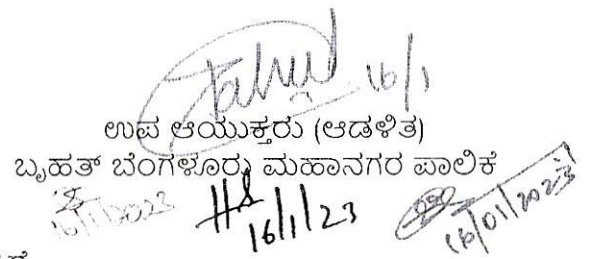 16/1
ಉಪ ಆಯುಕ್ತರು (ಆಡಳಿತ)
ಬೃಹತ್ ಬೆಂಗಳೂರು ಮಹಾನಗರ ಪಾಲಿಕೆ
16/1/2023 16/1/23 16/01/2023